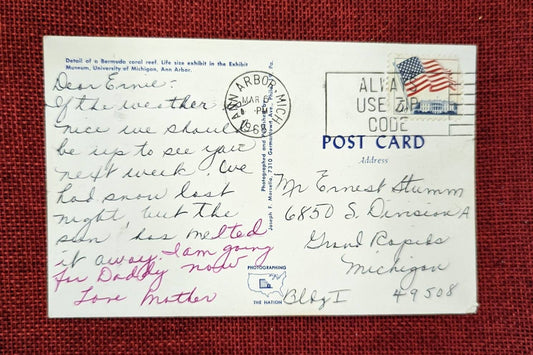 Detail of a Bermuda coral reef. Life size exhibit in the Exhibit
Museum, University of Michigan, Ann Arbor.
Dear Ernie:
If the weather is
nice we should
be up to see you
next week. We
had snow last
night, but the
sun has melted
it away. I am going
for Daddy now
Love Mother
ANN ARBOR, MICH
MAR
PM
196
ALWAYS
USE ZIP
CODE
POST CARD
Address
Mr Ernest Stumm
6850 S. Division A
Grand Rapids
Michigan
Bldg I 49508
Photographed and
Joseph F. Morsello, 7310 Germantown Ave.
Pa.
PHOTOGRAPHING
THE NATION